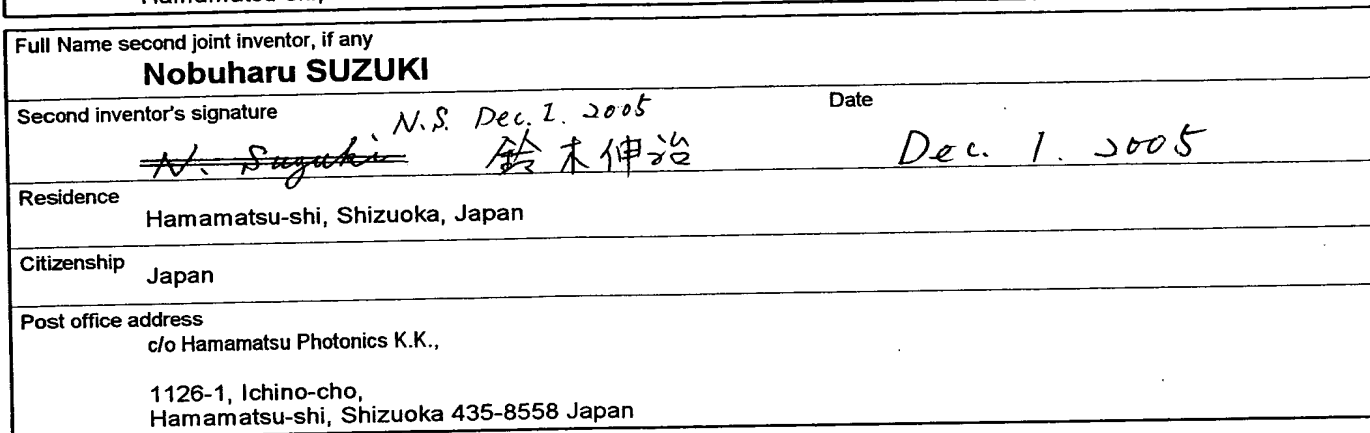 Full Name second joint inventor, if any
Nobuharu SUZUKI
Second inventor's signature
N.S. Dec. 1. 2005
Date
N. Suzuki 鈴木伸治
Dec. 1. 2005
Residence
Hamamatsu-shi, Shizuoka, Japan
Citizenship
Japan
Post office address
c/o Hamamatsu Photonics K.K.,
1126-1, Ichino-cho,
Hamamatsu-shi, Shizuoka 435-8558 Japan